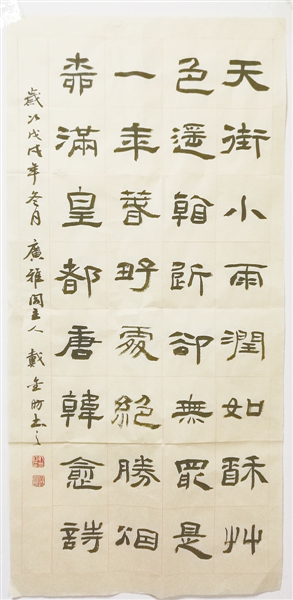 天街小雨潤如酥艸
色遥看近卻無最是
一年春好處絕勝烟
柳滿皇都唐韓愈詩
歲次戊戌年冬月廣雅閣主人戴金昉書之